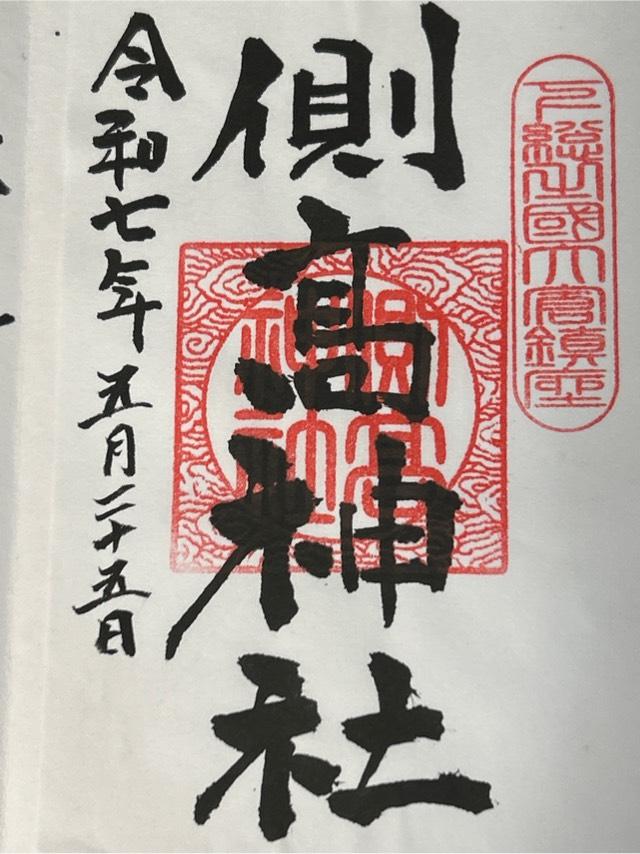 下総之國大倉鎮座
側高神社
側高
神社
令和七年五月二十五日